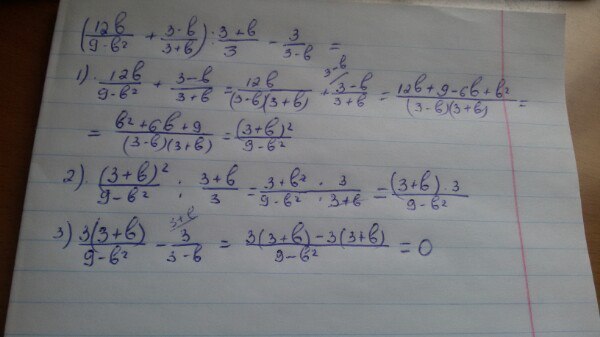 (12b/(9-b²) + (3-b)/(3+b)) : (3+b)/3 - 3/(3-b) =
1) 12b/(9-b²) + (3-b)/(3+b) = 12b/((3-b)(3+b)) + (3-b)/(3+b) ^(3-b) = (12b+9-6b+b²)/((3-b)(3+b)) =
= (b²+6b+9)/((3-b)(3+b)) = (3+b)²/(9-b²)
2) (3+b)²/(9-b²) : (3+b)/3 = (3+b²)/(9-b²) · 3/(3+b) = ((3+b)·3)/(9-b²)
3) 3(3+b)/(9-b²) - 3/(3-b) ^(3+b) = (3(3+b)-3(3+b))/(9-b²) = 0